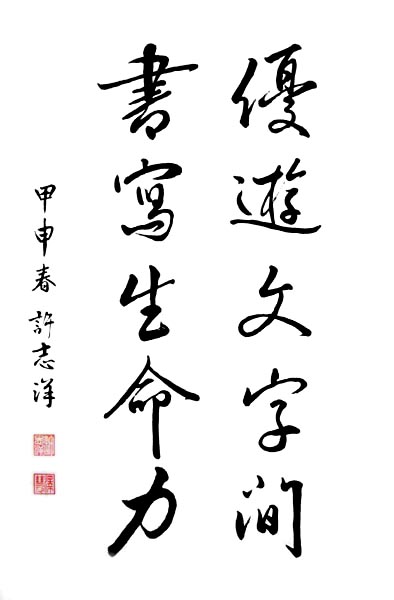 優遊文字間
書寫生命力
甲申春 許志洋